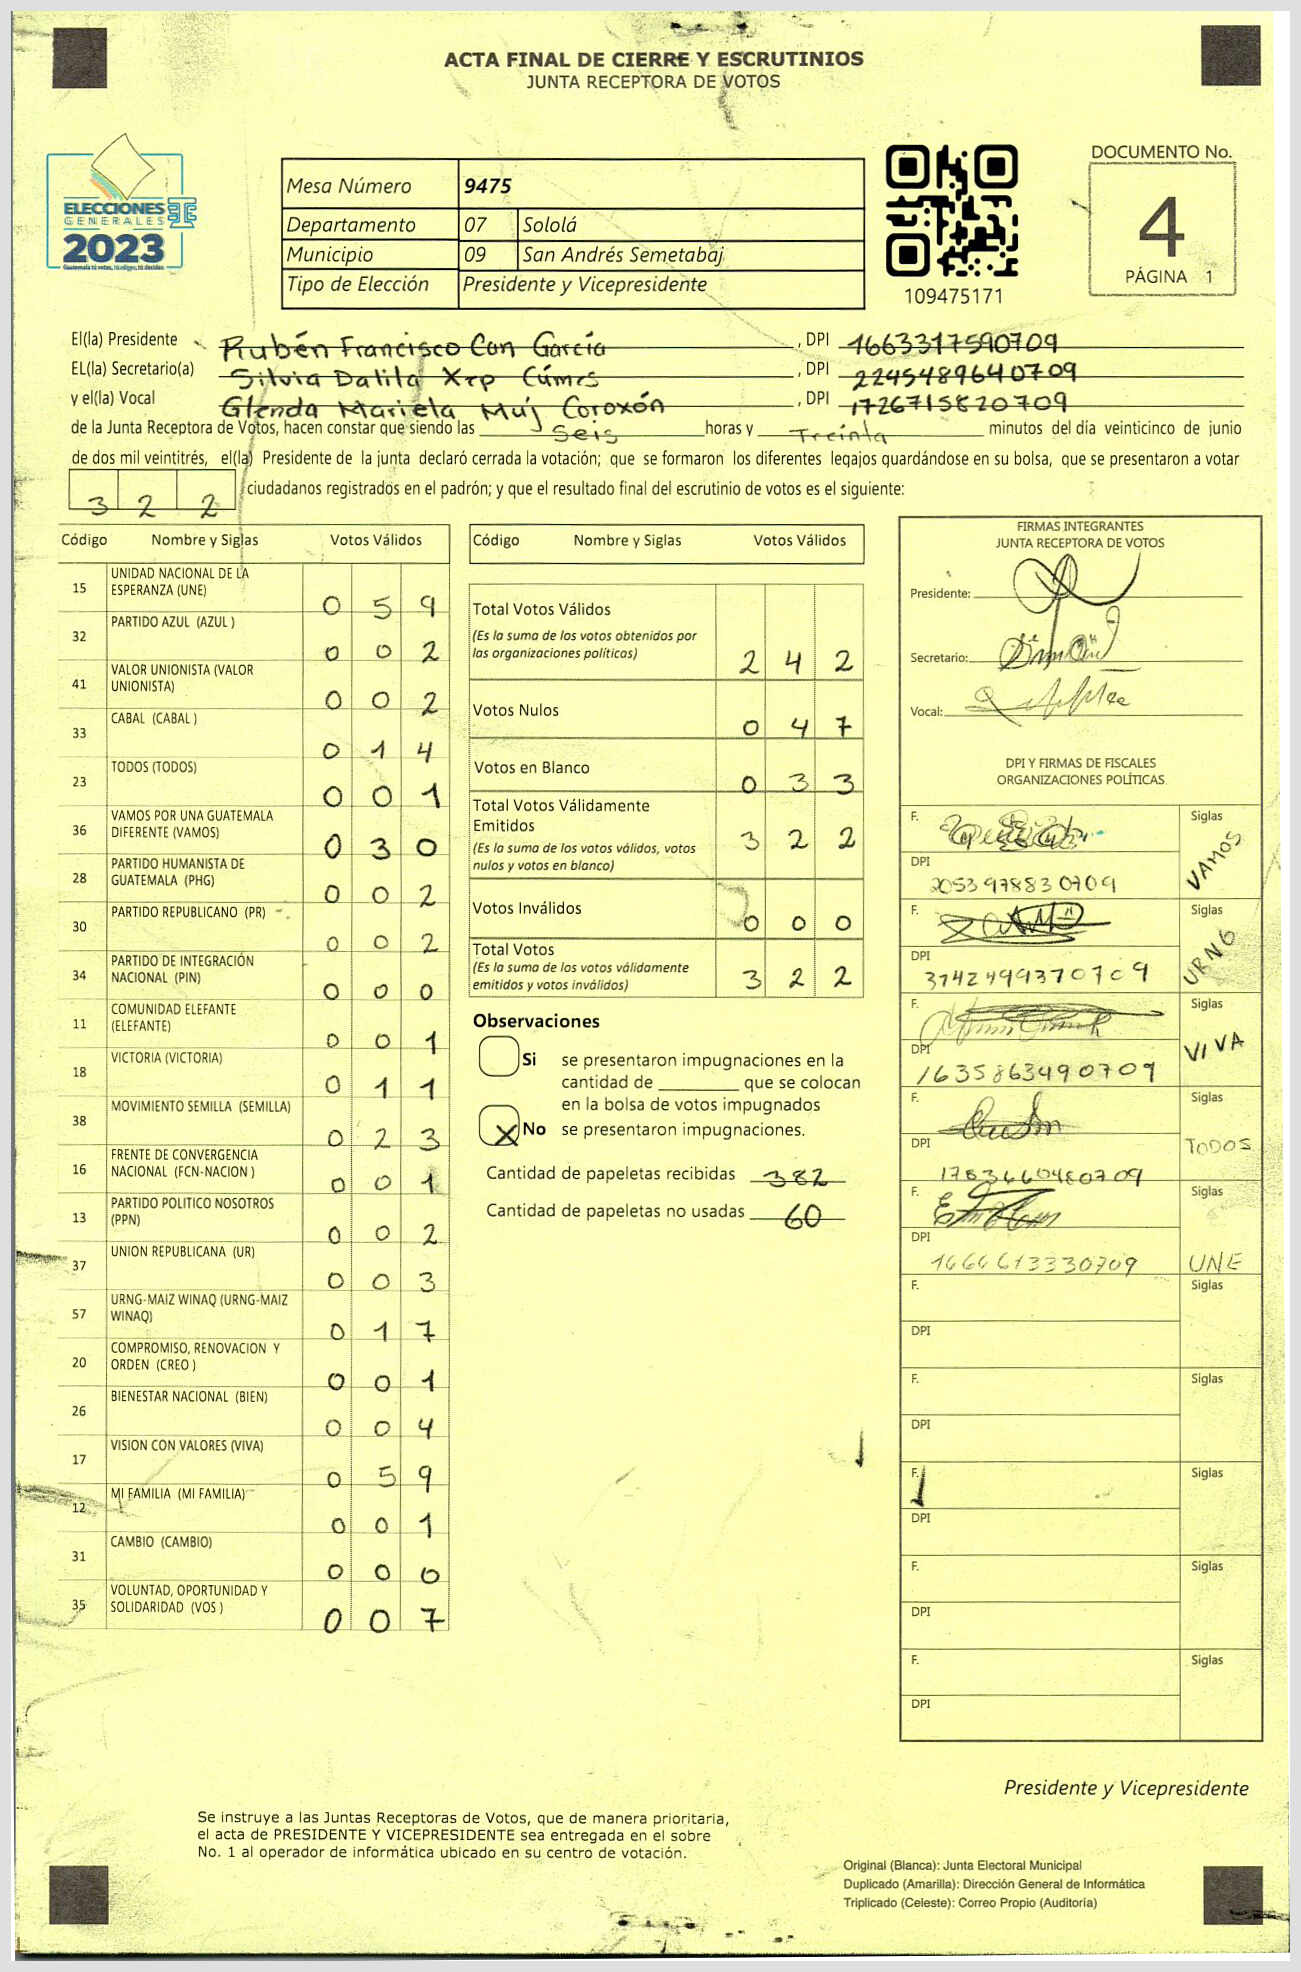 ACTA FINAL DE CIERRE Y ESCRUTINIOS
JUNTA RECEPTORA DE VOTOS
ELECCIONES
GENERALES
2023
Guatemala tú votas, tú eliges, tú decides
Mesa Número 9475
Departamento 07 Sololá
Municipio 09 San Andrés Semetabaj
Tipo de Elección Presidente y Vicepresidente
109475171
DOCUMENTO No.
4
PÁGINA 1
El(la) Presidente Rubén Francisco Can García , DPI 1663317590709
EL(la) Secretario(a) Silvia Dalila Xep Cúmes , DPI 2245489640709
y el(la) Vocal Glenda Mariela Muj Coroxón , DPI 1726715820709
de la Junta Receptora de Votos, hacen constar que siendo las Seis horas y Treinta minutos del día veinticinco de junio
de dos mil veintitrés, el(la) Presidente de la junta declaró cerrada la votación; que se formaron los diferentes legajos quardándose en su bolsa, que se presentaron a votar
3 2 2 ciudadanos registrados en el padrón; y que el resultado final del escrutinio de votos es el siguiente:
Código Nombre y Siglas Votos Válidos
15 UNIDAD NACIONAL DE LA
ESPERANZA (UNE) 0 5 9
32 PARTIDO AZUL (AZUL ) 0 0 2
41 VALOR UNIONISTA (VALOR
UNIONISTA) 0 0 2
33 CABAL (CABAL ) 0 1 4
23 TODOS (TODOS) 0 0 1
36 VAMOS POR UNA GUATEMALA
DIFERENTE (VAMOS) 0 3 0
28 PARTIDO HUMANISTA DE
GUATEMALA (PHG) 0 0 2
30 PARTIDO REPUBLICANO (PR) 0 0 2
34 PARTIDO DE INTEGRACIÓN
NACIONAL (PIN) 0 0 0
11 COMUNIDAD ELEFANTE
(ELEFANTE) 0 0 1
18 VICTORIA (VICTORIA) 0 1 1
38 MOVIMIENTO SEMILLA (SEMILLA) 0 2 3
16 FRENTE DE CONVERGENCIA
NACIONAL (FCN-NACION ) 0 0 1
13 PARTIDO POLITICO NOSOTROS
(PPN) 0 0 2
37 UNION REPUBLICANA (UR) 0 0 3
57 URNG-MAIZ WINAQ (URNG-MAIZ
WINAQ) 0 1 7
20 COMPROMISO, RENOVACION Y
ORDEN (CREO ) 0 0 1
26 BIENESTAR NACIONAL (BIEN) 0 0 4
17 VISION CON VALORES (VIVA) 0 5 9
12 MI FAMILIA (MI FAMILIA) 0 0 1
31 CAMBIO (CAMBIO) 0 0 0
35 VOLUNTAD, OPORTUNIDAD Y
SOLIDARIDAD (VOS ) 0 0 7
Código Nombre y Siglas Votos Válidos
Total Votos Válidos
(Es la suma de los votos obtenidos por
las organizaciones políticas) 2 4 2
Votos Nulos 0 4 7
Votos en Blanco 0 3 3
Total Votos Válidamente
Emitidos
(Es la suma de los votos válidos, votos
nulos y votos en blanco) 3 2 2
Votos Inválidos 0 0 0
Total Votos
(Es la suma de los votos válidamente
emitidos y votos inválidos) 3 2 2
Observaciones
Si se presentaron impugnaciones en la
cantidad de ________ que se colocan
en la bolsa de votos impugnados
X No se presentaron impugnaciones.
Cantidad de papeletas recibidas 382
Cantidad de papeletas no usadas 60
FIRMAS INTEGRANTES
JUNTA RECEPTORA DE VOTOS
Presidente:
Secretario:
Vocal:
DPI Y FIRMAS DE FISCALES
ORGANIZACIONES POLÍTICAS
F. Siglas
VAMOS
DPI
2053978830709
F. Siglas
URNG
DPI
3742499370709
F. Siglas
VIVA
DPI
1635863490709
F. Siglas
TODOS
DPI
1783660480709
F. Siglas
UNE
DPI
1666613330709
F. Siglas
DPI
F. Siglas
DPI
F. Siglas
DPI
F. Siglas
DPI
F. Siglas
DPI
Presidente y Vicepresidente
Se instruye a las Juntas Receptoras de Votos, que de manera prioritaria,
el acta de PRESIDENTE Y VICEPRESIDENTE sea entregada en el sobre
No. 1 al operador de informática ubicado en su centro de votación.
Original (Blanca): Junta Electoral Municipal
Duplicado (Amarilla): Dirección General de Informática
Triplicado (Celeste): Correo Propio (Auditoría)